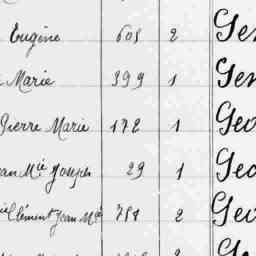 Eugène 605 2 Ge
Marie 399 1 Ge
Pierre Marie 172 1 Geo
ean Mie Joseph 29 1 Geo
Clément Jean Mie 751 2 Geo